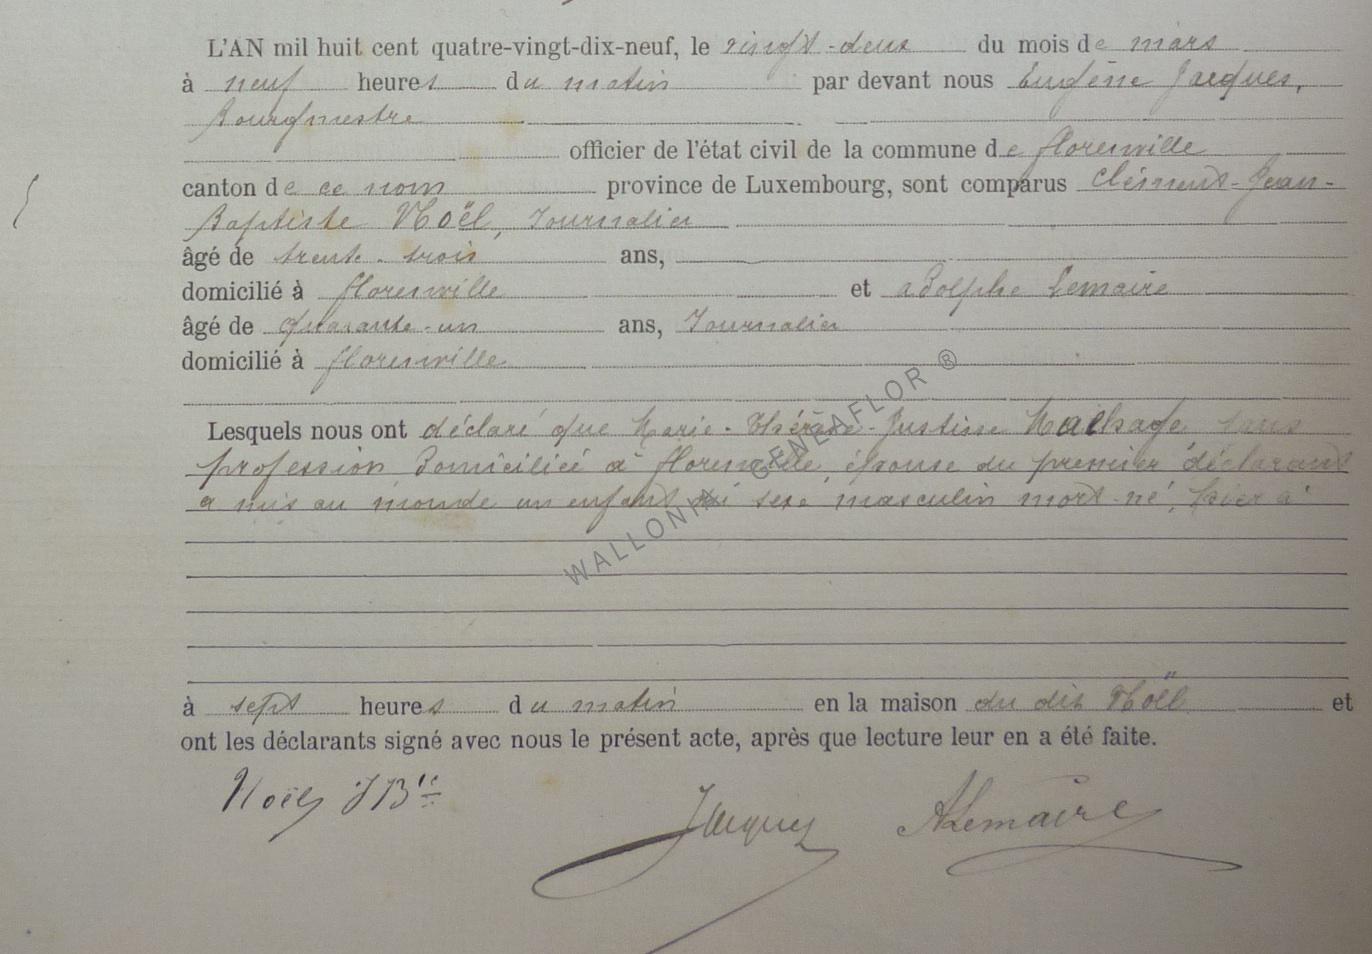 L'AN mil huit cent quatre-vingt-dix-neuf, le vingt-deux du mois de mars
à neuf heures du matin par devant nous Eugène Jacques,
Bourgmestre
officier de l'état civil de la commune de florenville
canton de ce nom province de Luxembourg, sont comparus Clément-Jean-
Baptiste Noël, Journalier
âgé de trente-trois ans,
domicilié à florenville et Adolphe Lemaire
âgé de quarante-un ans, Journalier
domicilié à florenville
Lesquels nous ont déclaré que Marie-Thérèse-Justine sans
profession domiciliée à florenville, épouse du premier déclarant
a mis au monde un enfant du sexe masculin mort-né, hier à
WALLONIA GENEAFLOR ®
à sept heures du matin en la maison du dit Noël et
ont les déclarants signé avec nous le présent acte, après que lecture leur en a été faite.
Noël J Bte Jacques ALemaire